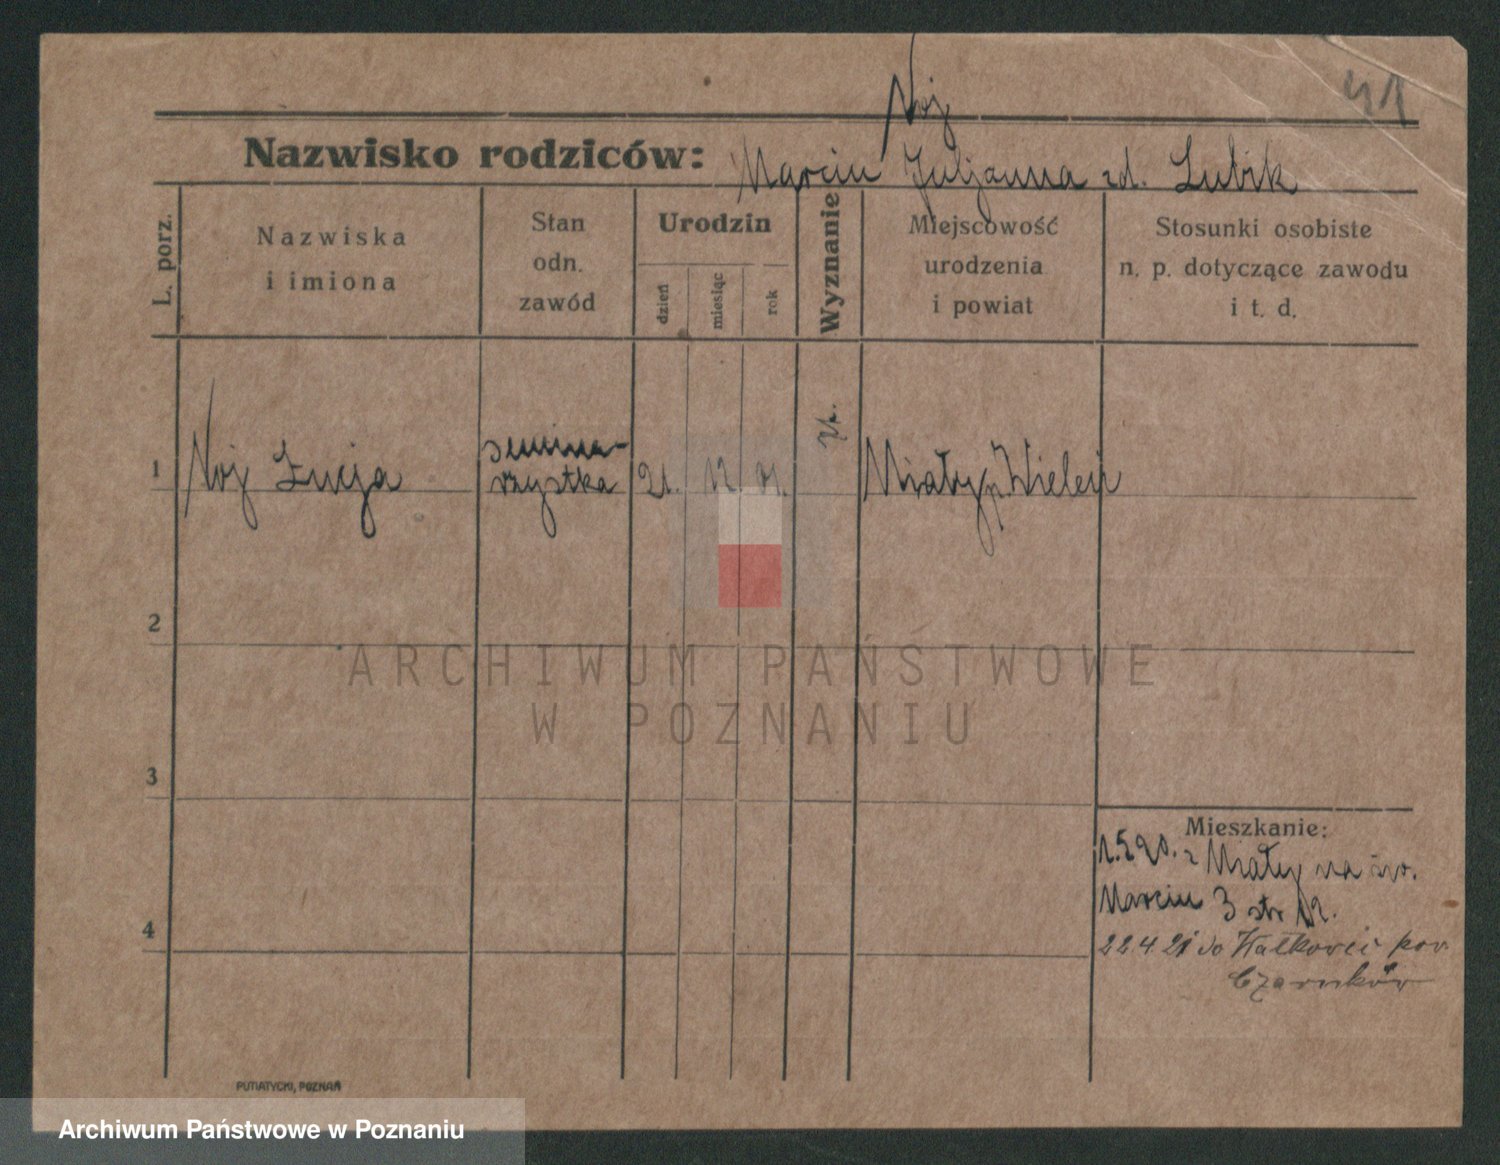 Noj
41
Nazwisko rodziców: Marcin Juljanna zd. Lubik
L. porz.
Nazwiska
i imiona
Stan
odn.
zawód
Urodzin
dzień
miesiąc
rok
Wyznanie
Miejscowość
urodzenia
i powiat
Stosunki osobiste
n. p. dotyczące zawodu
i t. d.
1
Noj Łucja
semina-
rzystka
21. 12
Miały p. Wieleń
2
3
4
Mieszkanie:
1.5.20. z Miały na św.
Marcin 3 str 12.
22.4.21 do Hałkowic pow.
Czarnków
PUTIATYCKI, POZNAŃ
ARCHIWUM PAŃSTWOWE
W POZNANIU
Archiwum Państwowe w Poznaniu